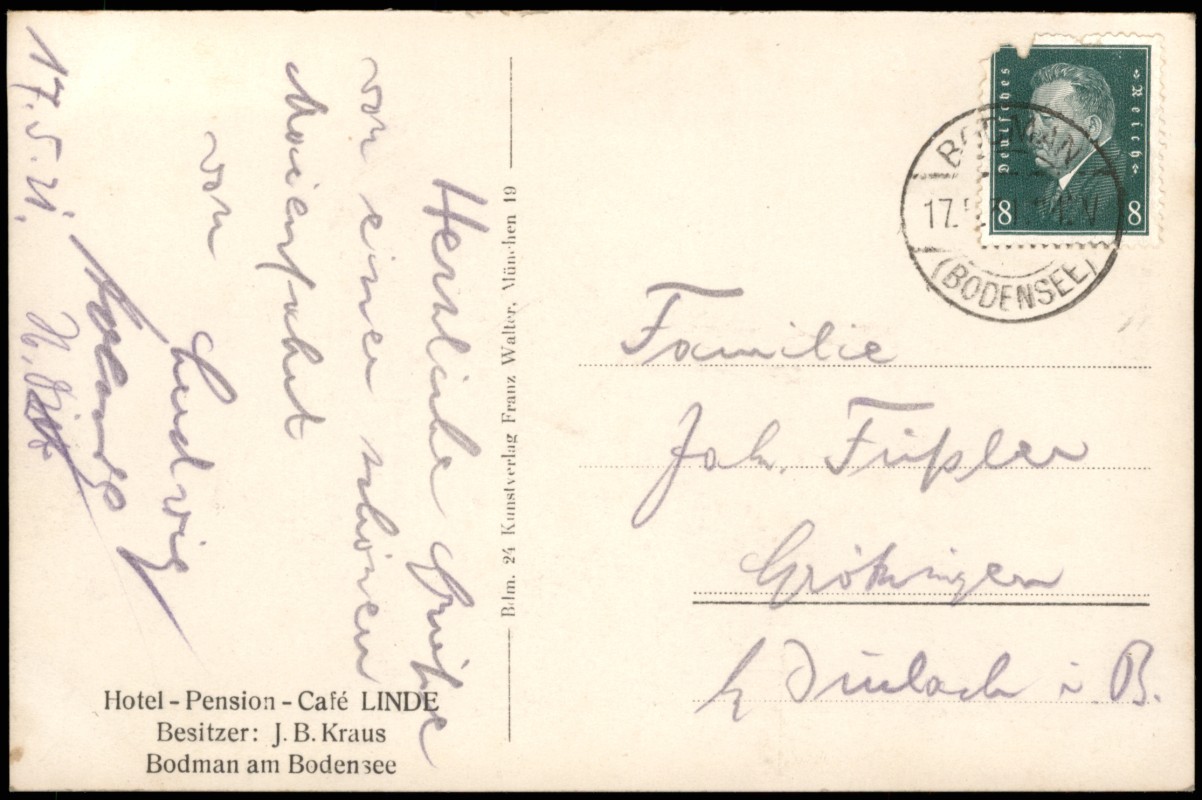 17.5.
Herzliche Grüße
von einer schönen
Maienfahrt
von
Ludwig
Hotel - Pension - Café LINDE
Besitzer: J. B. Kraus
Bodman am Bodensee
Bdm. 24 Kunstverlag Franz Walter, München 19
Deutsches Reich
8 8
BODMAN
17.
(BODENSEE)
Familie
Joh. Füßler
Grötzingen
b Durlach i B.